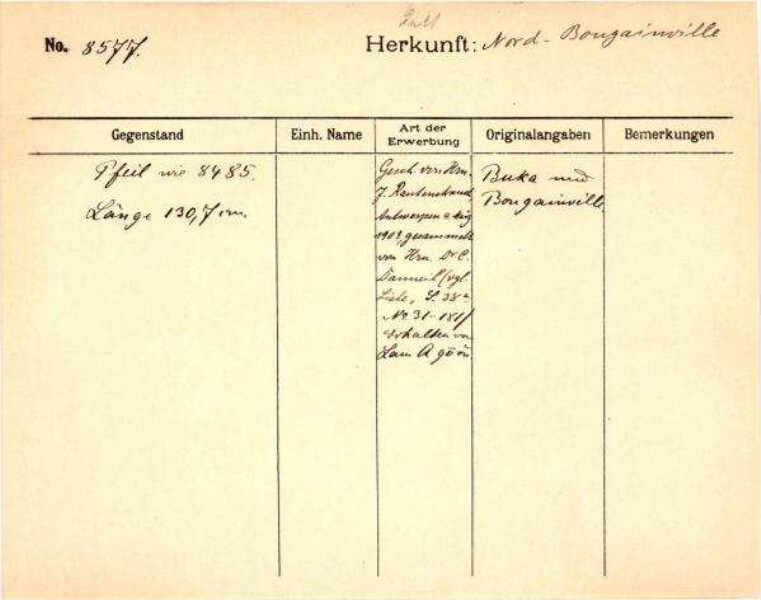 No. 8577.
Herkunft: Nord-Bougainville
Gegenstand
Einh. Name
Art der Erwerbung
Originalangaben
Bemerkungen
Pfeil wie 8485.
Länge 130,7 cm.
Gesch. von Hrn.
J. Rautenstrauch
Antwerpen
1909, gesammelt
von Hrn. Dr C.
Danneil (vgl.
Liste, S. 38
No 31-181)
Erhalten von
Buka und
Bougainville